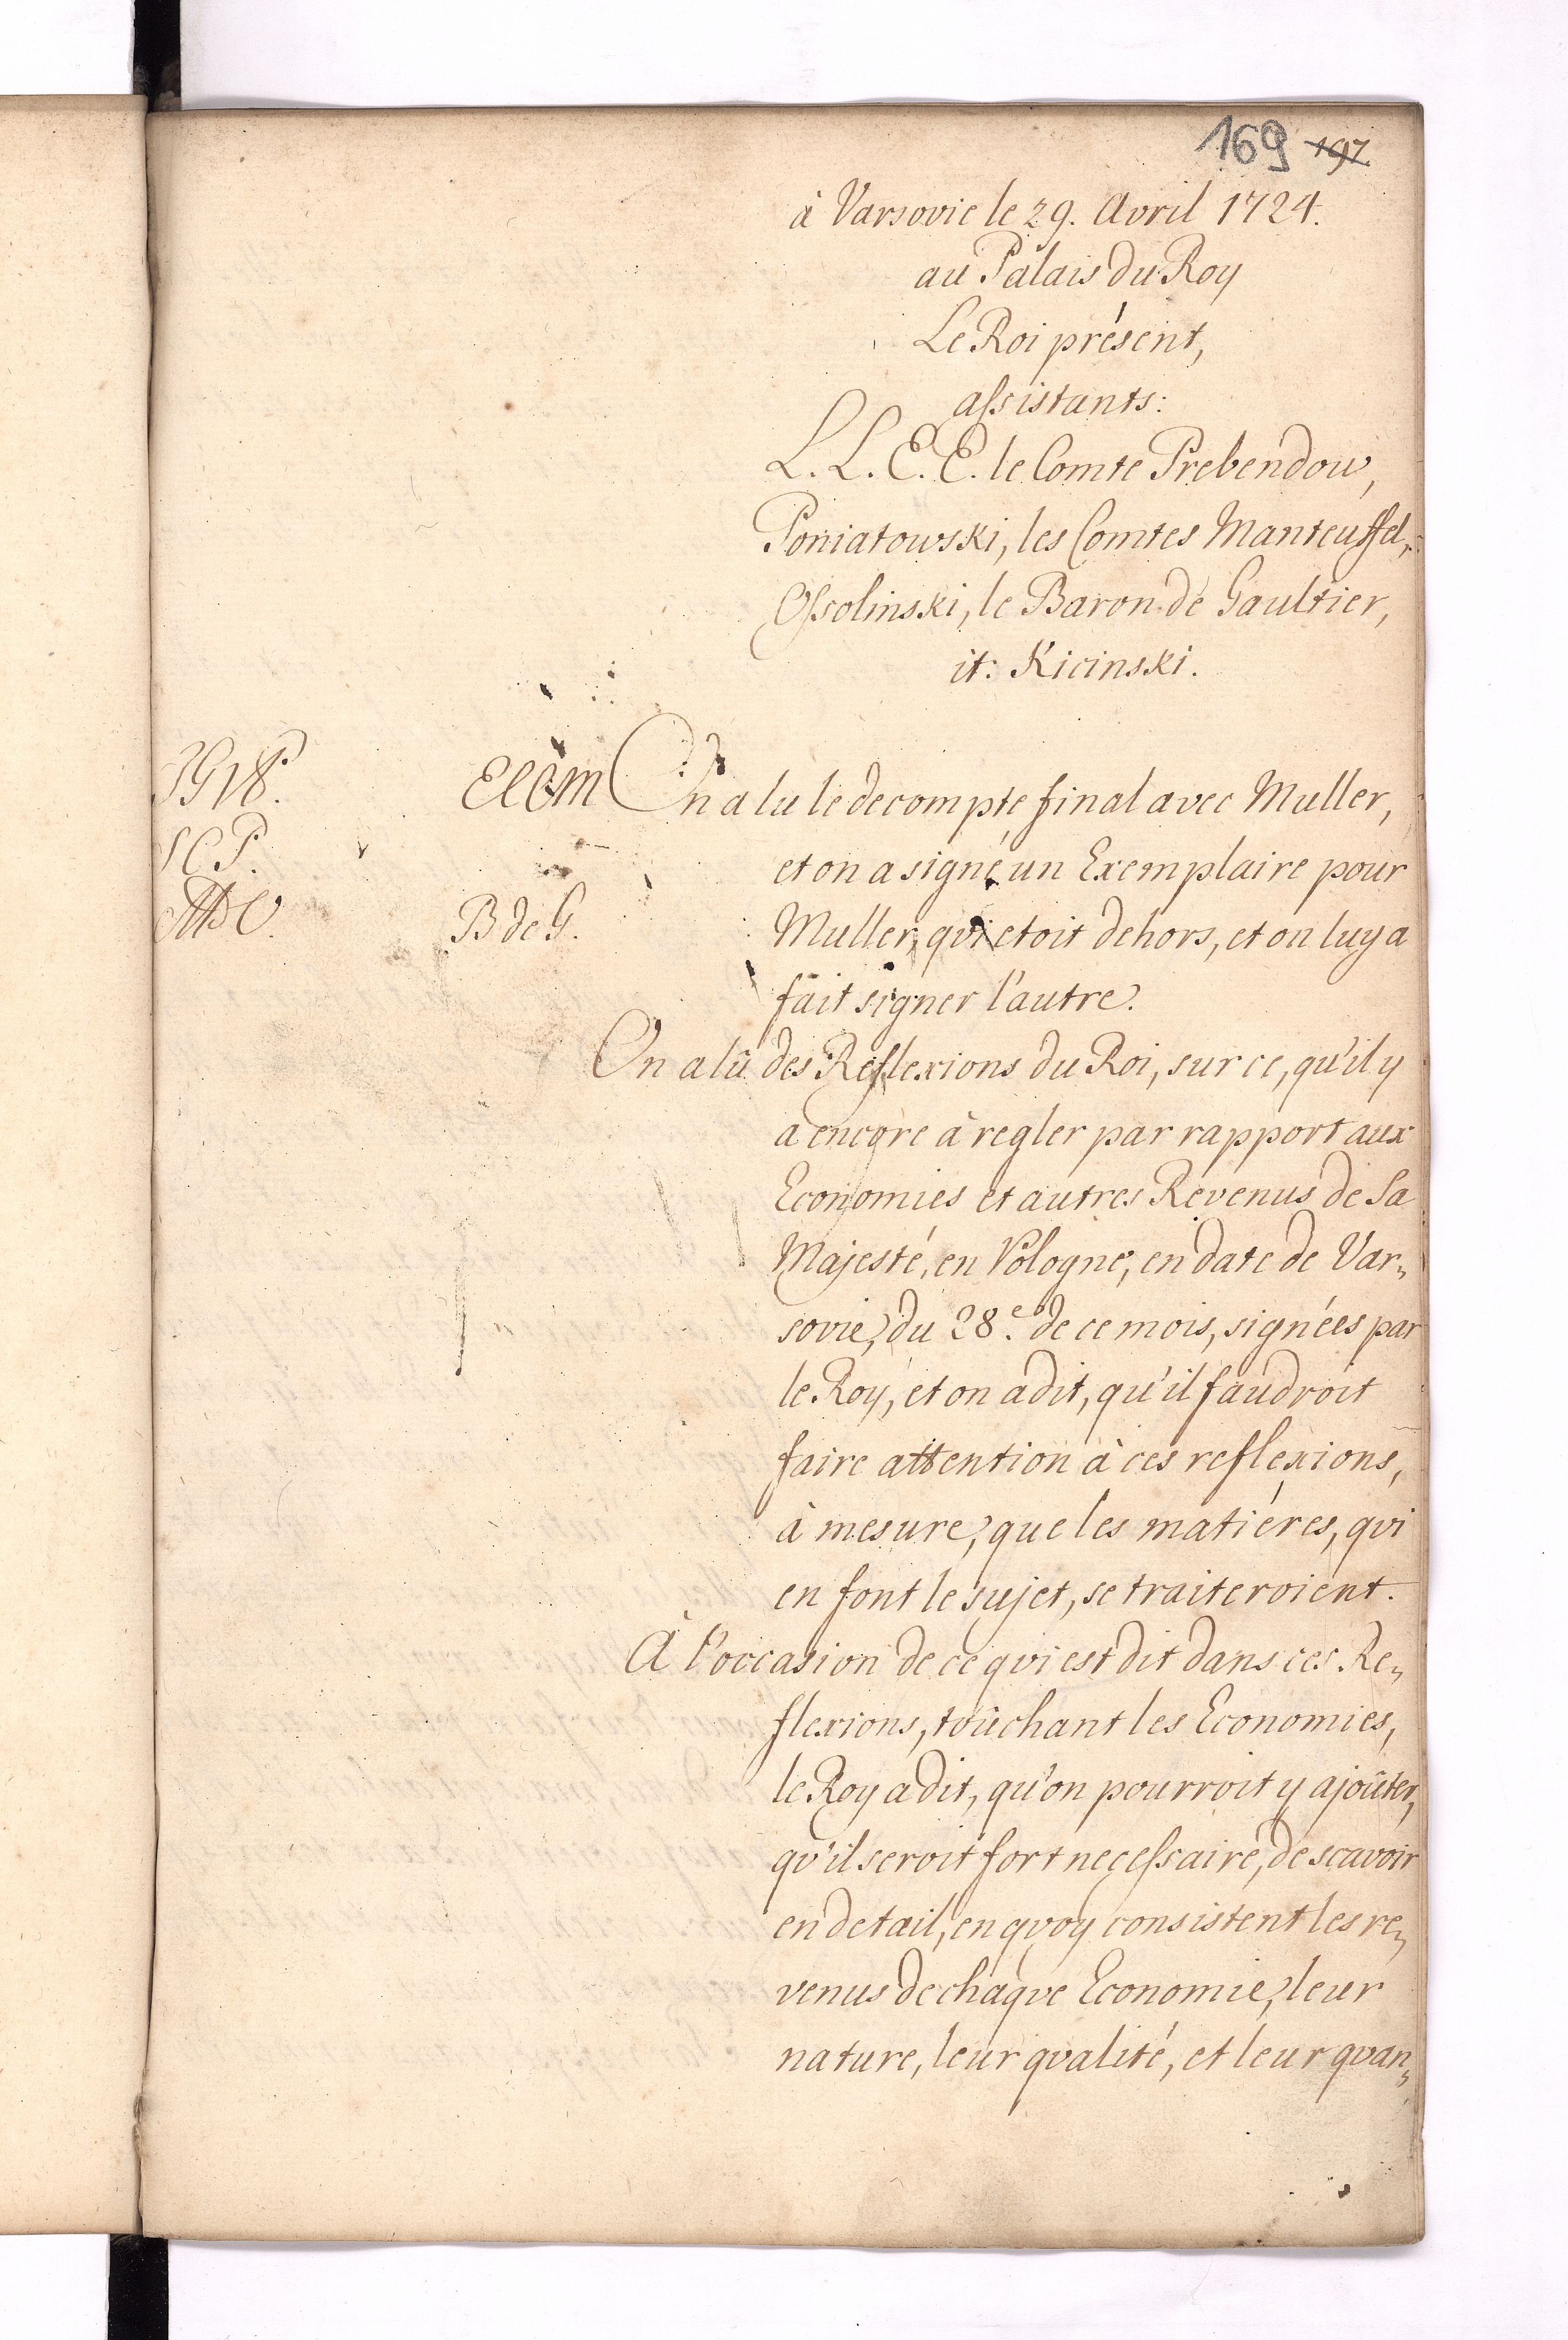 169 197
à Varsovie le 29. Avril 1724.
au Palais du Roy
Le Roi présent,
assistants:
L. L. E. E. le Comte Prebendow,
Poniatowski, les Comtes Manteuffel,
Ossolinski, le Baron de Gaultier,
it: Kicinski.
On a lu le decompte final avec Muller,
et on a signé un Exemplaire pour
B de G.
Muller, qvi etoit dehors, et on luy a
fait signer l'autre.
On a lû des Reflexions du Roi, sur ce, qu'il y
a encore à regler par rapport aux
Economies et autres Revenus de Sa
Majesté, en Pologne, en date de Var„
sovie, du 28.e de ce mois, signées par
le Roy, et on a dit, qu'il faudroit
faire attention à ces reflexions,
à mesure, que les matiéres, qvi
en font le sujet, se traiteroient.
À l'occasion de ce qvi est dit dans ces Re„
flexions, toûchant les Economies,
le Roy a dit, qu'on pourroit y ajoûter,
qv'il seroit fort necessaire, de scavoir
en detail, en qvoy consistent les re„
venus de chaqve Economie, leur
nature, leur qvalité, et leur qvan„